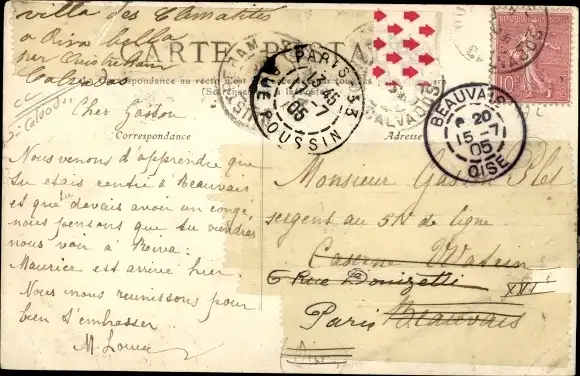 villa des Clématites
a Riva bella
par Ouistreham
Calvados
CARTE POSTALE
Correspondance
Adresse
Cher Gaston
Nous venons d'apprendre que
tu étais rentré à Beauvais
et que tu devais avoir un congé,
nous pensons que tu viendras
nous voir à Riva.
Maurice est arrivé hier
Nous nous reunissons pour
bien t'embrasser
M Louise
PARIS 33
13 45
-7
05
RUE POUSSIN
CALVADOS
BEAUVAIS
20
15 -7
05
OISE
10c
Monsieur Gaston
sergent au 51e de ligne
Caserne Watrin
6 Rue Donizetti
XVI
Paris Beauvais
Oise